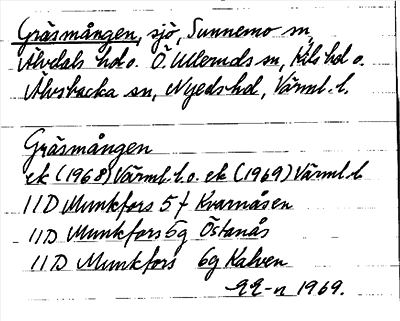 Gräsmången, sjö, Sunnemo sn,
Älvdals hd o. Ö. Ulleruds sn, Kils hd o.
Älvsbacka sn, Nyeds hd, Värml. l.
Gräsmången
ek (1968) Värml. l. o. ek (1969) Värml. l.
11D Munkfors 5f Kvarnåsen
11D Munkfors 6g Östanås
11D Munkfors 6g Kalven
1969.